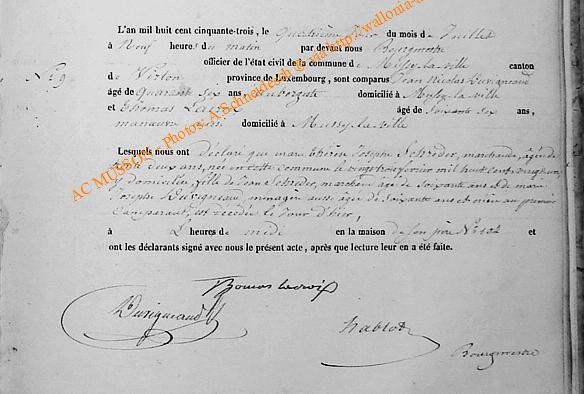 L'an mil huit cent cinquante-trois, le Quatrième jour du mois de Juillet
à Neuf heures du matin par devant nous Bourgmestre
officier de l'état civil de la commune de Mussy-la-ville canton
de Virton province de Luxembourg, sont comparus Jean Nicolas Duvigneaud
âgé de Quarante Six ans, aubergiste domicilié à Mussy-la-ville
et Thomas Lacroix âgé de Soixante six ans,
manœuvre domicilié à Mussy-la-ville
N° 9
Lesquels nous ont déclaré que marie thérèse Joseph Schreder, marchande, âgée de
deux ans, née en cette commune le vingt trois février mil huit cent vingt un
y domiciliée, fille de Jean Schreder, marchand âgé de soixante ans et de marie
Josephe Duvigneau ménagère aussi âgée de soixante ans et
comparant, est décédée le Jour d'hier,
à L'heures de midi en la maison de son père N° 102 et
ont les déclarants signé avec nous le présent acte, après que lecture leur en a été faite.
Thomas Lacroix
Duvigneaud
hablot
Bourgmestre
AC MUSSON - Photos: A.Schneidesch @ via http://wallonia-a